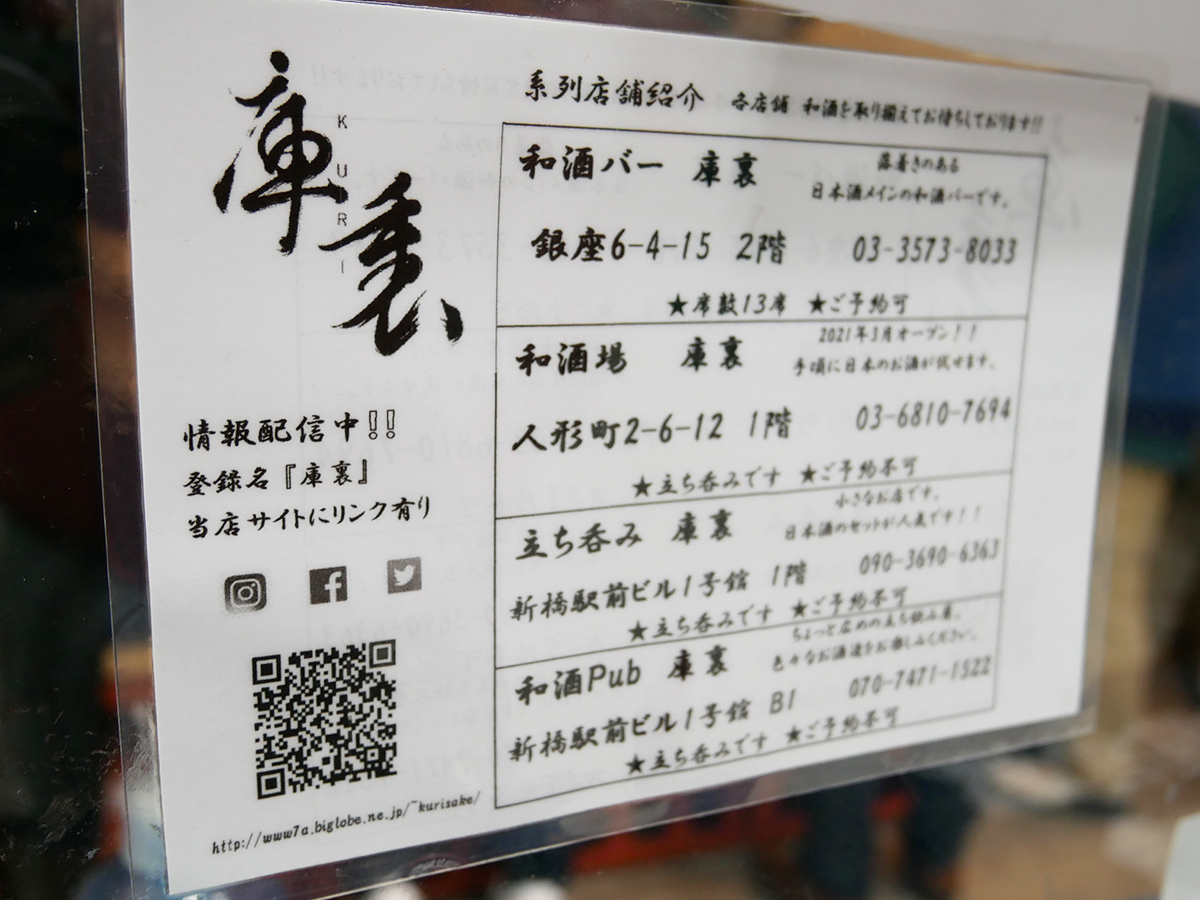 庫裏
KURI
系列店舗紹介 各店舗 和酒を取り揃えてお待ちしております!!
和酒バー 庫裏
落着きのある
日本酒メインの和酒バーです。
銀座6-4-15 2階 03-3573-8033
★席数13席 ★ご予約可
和酒場 庫裏
2021年3月オープン!!
手頃に日本のお酒が試せます。
人形町2-6-12 1階 03-6810-7694
★立ち呑みです ★ご予約不可
立ち呑み 庫裏
小さなお店です。
日本酒のセットが人気です!!
新橋駅前ビル1号館 1階 090-3690-6363
★立ち呑みです ★ご予約不可
和酒Pub 庫裏
ちょっと広めの立ち飲み屋。
色々なお酒達をお楽しみください。
新橋駅前ビル1号館 B1 070-7471-1522
★立ち呑みです ★ご予約不可
情報配信中!!
登録名『庫裏』
当店サイトにリンク有り
http://www7a.biglobe.ne.jp/~kurisake/